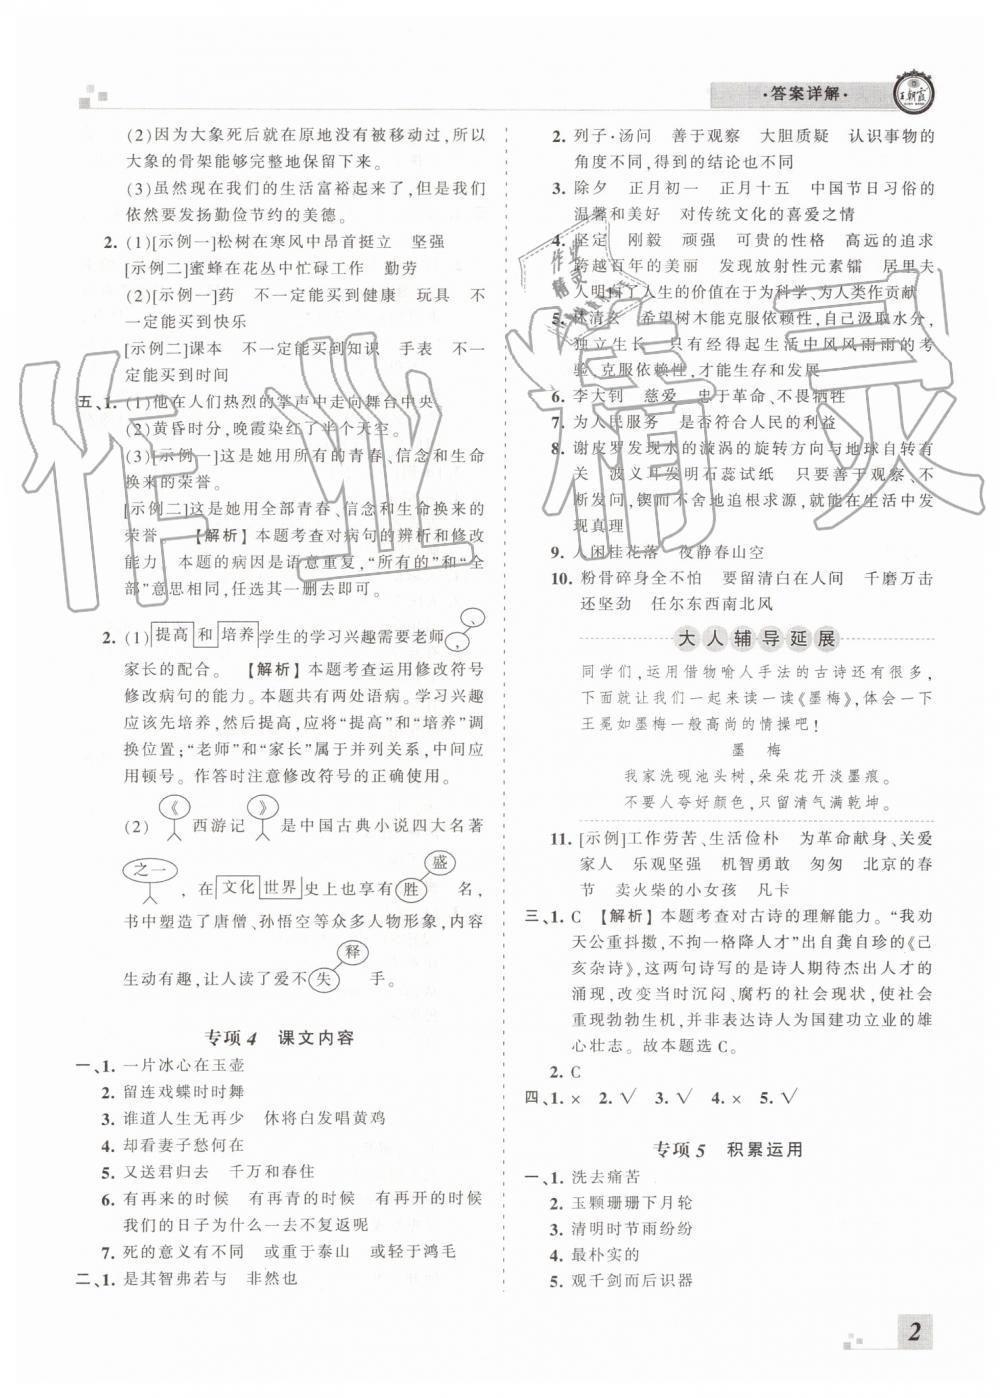 ·答案详解·
王朝霞
(2)因为大象死后就在原地没有被移动过,所以
大象的骨架能够完整地保留下来。
(3)虽然现在我们的生活富裕起来了,但是我们
依然要发扬勤俭节约的美德。
2. (1)[示例一]松树在寒风中昂首挺立 坚强
[示例二]蜜蜂在花丛中忙碌工作 勤劳
(2)[示例一]药 不一定能买到健康 玩具 不
一定能买到快乐
[示例二]课本 不一定能买到知识 手表 不一
定能买到时间
五、1. (1)他在人们热烈的掌声中走向舞台中央。
(2)黄昏时分,晚霞染红了半个天空。
(3)[示例一]这是她用所有的青春、信念和生命
换来的荣誉。
[示例二]这是她用全部青春、信念和生命换来的
荣誉。 【解析】本题考查对病句的辨析和修改
能力。本题的病因是语意重复,“所有的”和“全
部”意思相同,任选其一删去即可。
2. (1)提高和培养学生的学习兴趣需要老师,、
家长的配合。 【解析】本题考查运用修改符号
修改病句的能力。本题共有两处语病。学习兴趣
应该先培养,然后提高,应将“提高”和“培养”调
换位置;“老师”和“家长”属于并列关系,中间应
用顿号。作答时注意修改符号的正确使用。
(2)《西游记》是中国古典小说四大名著
之一,在文化世界史上也享有胜盛名,
书中塑造了唐僧、孙悟空等众多人物形象,内容
生动有趣,让人读了爱不失释手。
专项4 课文内容
一、1. 一片冰心在玉壶
2. 留连戏蝶时时舞
3. 谁道人生无再少 休将白发唱黄鸡
4. 却看妻子愁何在
5. 又送君归去 千万和春住
6. 有再来的时候 有再青的时候 有再开的时候
我们的日子为什么一去不复返呢
7. 死的意义有不同 或重于泰山 或轻于鸿毛
二、1. 是其智弗若与 非然也
2. 列子·汤问 善于观察 大胆质疑 认识事物的
角度不同,得到的结论也不同
3. 除夕 正月初一 正月十五 中国节日习俗的
温馨和美好 对传统文化的喜爱之情
4. 坚定 刚毅 顽强 可贵的性格 高远的追求
跨越百年的美丽 发现放射性元素镭 居里夫
人明白了人生的价值在于为科学、为人类作贡献
5. 林清玄 希望树木能克服依赖性,自己汲取水分,
独立生长 只有经得起生活中风风雨雨的考
验、克服依赖性,才能生存和发展
6. 李大钊 慈爱 忠于革命、不怕牺牲
7. 为人民服务 是否符合人民的利益
8. 谢皮罗发现水的漩涡的旋转方向与地球自转有
关 波义耳发明石蕊试纸 只要善于观察、不
断发问,锲而不舍地追根求源,就能在生活中发
现真理
9. 人闲桂花落 夜静春山空
10. 粉骨碎身全不怕 要留清白在人间 千磨万击
还坚劲 任尔东西南北风
大人辅导延展
同学们,运用借物喻人手法的古诗还有很多,
下面就让我们一起来读一读《墨梅》,体会一下
王冕如墨梅一般高尚的情操吧!
墨 梅
我家洗砚池头树,朵朵花开淡墨痕。
不要人夸好颜色,只留清气满乾坤。
11. [示例]工作劳苦、生活俭朴 为革命献身、关爱
家人 乐观坚强 机智勇敢 匆匆 北京的春
节 卖火柴的小女孩 凡卡
三、1. C 【解析】本题考查对古诗的理解能力。“我劝
天公重抖擞,不拘一格降人才”出自龚自珍的《己
亥杂诗》,这两句诗写的是诗人期待杰出人才的
涌现,改变当时沉闷、腐朽的社会现状,使社会重
现勃勃生机,并非表达诗人为国建功立业的雄
心壮志。故本题选C。
2. C
四、1. × 2. √ 3. √ 4. × 5. √
专项5 积累运用
一、1. 洗去痛苦
2. 玉颗珊珊下月轮
3. 清明时节雨纷纷
4. 最朴实的
5. 观千剑而后识器
2
作业精灵